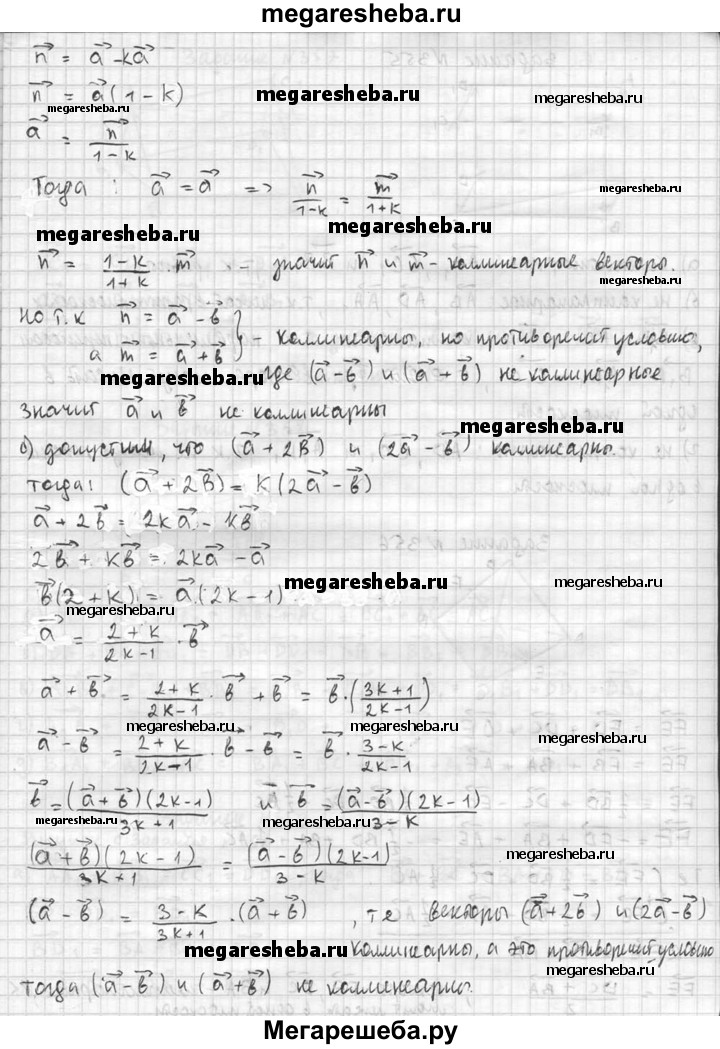 megaresheba.ru
n⃗ = a⃗ - ka⃗
n⃗ = a⃗(1-k)
megaresheba.ru
megaresheba.ru
megaresheba.ru
a⃗ = n⃗/(1-k)
Тогда: a⃗ = a⃗ => n⃗/(1-k) = m⃗/(1+k)
megaresheba.ru
megaresheba.ru
megaresheba.ru
n⃗ = (1-k)/(1+k) · m⃗ - значит n⃗ и m⃗ - коллинеарные векторы.
но т.к n⃗ = a⃗ - в⃗
а m⃗ = a⃗ + в⃗ } - коллинеарны, но противоречит условию,
megaresheba.ru
где (a⃗ - в⃗) и (a⃗ + в⃗) не коллинеарное
значит a⃗ и в⃗ не коллинеарны
megaresheba.ru
б) допустим, что (a⃗ + 2в⃗) и (2a⃗ - в⃗) коллинеарны.
тогда: (a⃗ + 2в⃗) = k(2a⃗ - в⃗)
a⃗ + 2в⃗ = 2ka⃗ - kв⃗
2в⃗ + kв⃗ = 2ka⃗ - a⃗
megaresheba.ru
в⃗(2+k) = a⃗(2k-1)
megaresheba.ru
megaresheba.ru
a⃗ = (2+k)/(2k-1) · в⃗
a⃗ + в⃗ = (2+k)/(2k-1) · в⃗ + в⃗ = в⃗ · ((3k+1)/(2k-1))
megaresheba.ru
megaresheba.ru
a⃗ - в⃗ = (2+k)/(2k-1) · в⃗ - в⃗ = в⃗ · (3-k)/(2k-1)
в⃗ = (a⃗+в⃗)(2k-1)/(3k+1) и в⃗ = (a⃗-в⃗)(2k-1)/(3-k)
megaresheba.ru
megaresheba.ru
(a⃗+в⃗)(2k-1)/(3k+1) = (a⃗-в⃗)(2k-1)/(3-k)
megaresheba.ru
(a⃗-в⃗) = (3-k)/(3k+1) · (a⃗+в⃗), т.е векторы (a⃗+2в⃗) и (2a⃗-в⃗)
megaresheba.ru
коллинеарны, а это противоречит условию
megaresheba.ru
тогда (a⃗-в⃗) и (a⃗+в⃗) не коллинеарны.
Мегарешеба.ру